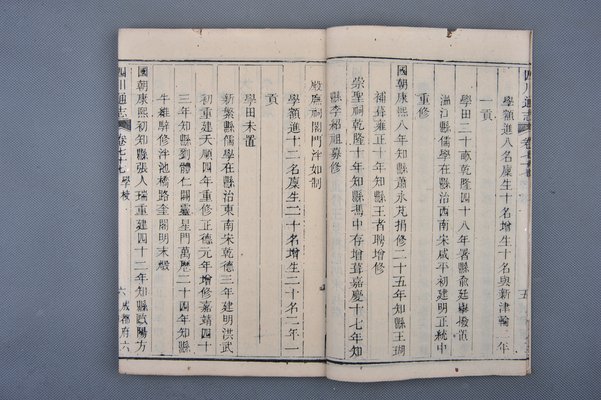 四川通志
學額進八名廩生十名增生十名與新津輪三年
一貢
學田二十畝乾隆四十八年署縣俞廷
溫江縣儒學在縣治西南宋咸平初建明正統中
重修
國朝康熙八年知縣蕭永芃捐修二十五年知縣王瑚
補葺雍正十年知縣王者聘增修
崇聖祠乾隆十年知縣馮中存增葺嘉慶十七年知
縣李紹祖募修
殿廡祠閣門泮如制
學額進十二名廩生二十名增生二十名二年一
貢
學田未置
新繁縣儒學在縣治東南宋乾德三年建明洪武
初重建天順四年重修正德元年增修嘉靖四十
三年知縣劉體仁闢靈星門萬歷二十四年知縣
牛維騂修泮池橋路奎閣明末燬
國朝康熙初知縣張人瑞重建四十二年知縣歐陽方
四川通志 卷七十七 學校 六 成都府六